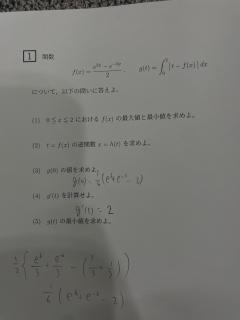 1 関数
f(x) = (e^{3x} - e^{-3x})/2, g(t) = ∫_0^1 |t - f(x)| dx
について, 以下の問いに答えよ.
(1) 0 ≤ x ≤ 2 における f(x) の最大値と最小値を求めよ.
(2) t = f(x) の逆関数 x = h(t) を求めよ.
(3) g(0) の値を求めよ.
g(0) = 1/6 (e^3 + e^{-3} - 2)
(4) g'(t) を計算せよ.
g'(t) = 2
(5) g(t) の最小値を求めよ.
1/2 { e^3/3 + e^{-3}/3 - (1/3 + 1/3) }
1/6 (e^3 + e^{-3} - 2)